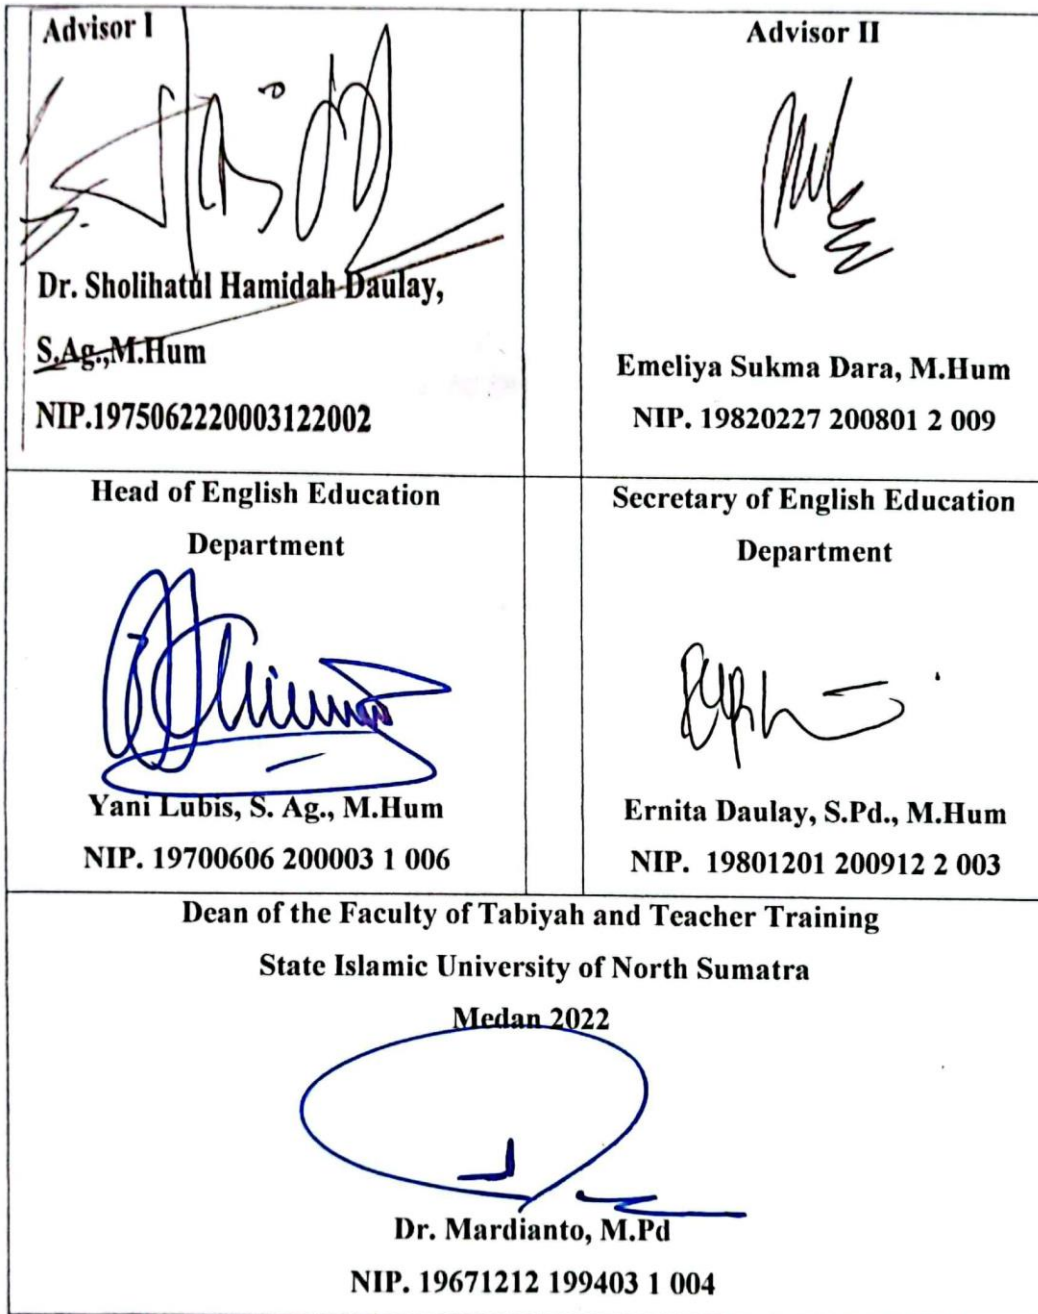 Advisor I
Dr. Sholihatul Hamidah Daulay,
S.Ag.,M.Hum
NIP.1975062220003122002
Advisor II
Emeliya Sukma Dara, M.Hum
NIP. 19820227 200801 2 009
Head of English Education
Department
Yani Lubis, S. Ag., M.Hum
NIP. 19700606 200003 1 006
Secretary of English Education
Department
Ernita Daulay, S.Pd., M.Hum
NIP. 19801201 200912 2 003
Dean of the Faculty of Tabiyah and Teacher Training
State Islamic University of North Sumatra
Medan 2022
Dr. Mardianto, M.Pd
NIP. 19671212 199403 1 004